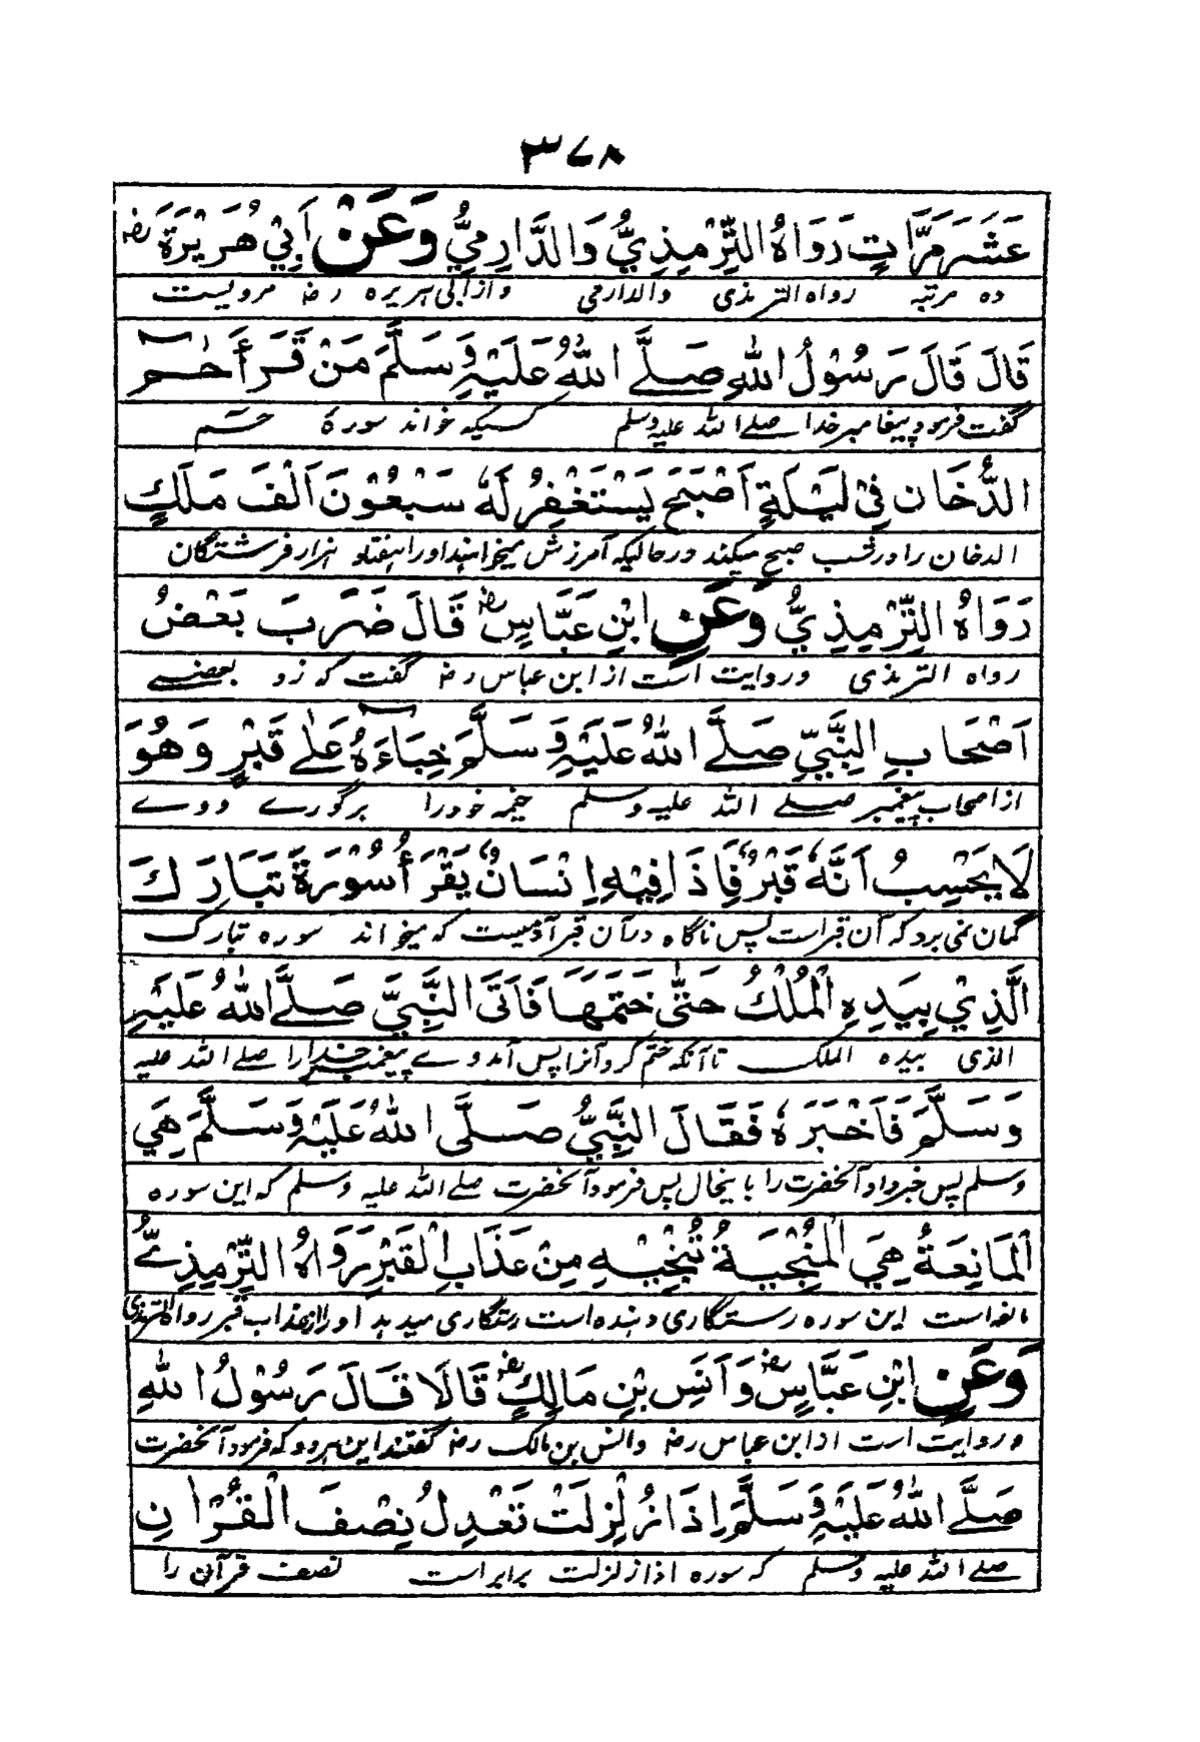 ۳۷۸
عَشَرَ مَرَّاتٍ رَوَاهُ التِّرْمِذِيُّ وَالدَّارِمِيُّ وَعَنْ اَبِيْ هُرَيْرَةَ رضہ
ده مرتبہ رواه الترمذی والدارمی و از ابی ہریره رضہ مرویست
قَالَ قَالَ رَسُوْلُ اللّٰهِ صَلَّے اللّٰهُ عَلَيْهِ وَسَلَّمَ مَنْ قَرَأَ حٰمٓ
گفت فرمود پیغامبر خدا صلے اللہ علیہ وسلم کسیکہ خواند سورۂ حٰمٓ
الدُّخَان فِيْ لَيْلَةٍ اَصْبَحَ يَسْتَغْفِرُ لَهٗ سَبْعُوْنَ اَلْفَ مَلَكٍ
الدخان را در شب صبح میکند در حالیکہ آمرزش میخواہند اورا ہفتاد ہزار فرشتگان
رَوَاهُ التِّرْمِذِيُّ وَعَنِ ابْنِ عَبَّاسٍ رضہ قَالَ ضَرَبَ بَعْضُ
رواه الترمذی و روایت است از ابن عباس رضہ گفت کہ زد بعضے
اَصْحَابِ النَّبِيِّ صَلَّے اللّٰهُ عَلَيْهِ وَسَلَّمَ خِبَاءَهُ عَلٰے قَبْرٍ وَهُوَ
از اصحاب پیغمبر صلے اللہ علیہ وسلم خیمہ خود را بر گورے و وے
لَا يَحْسِبُ اَنَّهٗ قَبْرٌ فَاِذَا فِيْهِ اِنْسَانٌ يَقْرَأُ سُوْرَةَ تَبَارَكَ
گمان نمی برد کہ آن قبر است پس ناگاه در آن قبر آدمیست کہ میخواند سوره تبارک
الَّذِيْ بِيَدِهِ الْمُلْكُ حَتّٰى خَتَمَهَا فَاَتَى النَّبِيَّ صَلَّے اللّٰهُ عَلَيْهِ
الذی بیده الملک تا آنکہ ختم کرد آنرا پس آمد وے پیغمبر خدا را صلے اللہ علیہ
وَسَلَّمَ فَاَخْبَرَهٗ فَقَالَ النَّبِيُّ صَلَّى اللّٰهُ عَلَيْهِ وَسَلَّمَ هِيَ
وسلم پس خبر داد آنحضرت را باینحال پس فرمود آنحضرت صلے اللہ علیہ وسلم کہ این سوره
الْمَانِعَةُ هِيَ الْمُنْجِيَةُ تُنْجِيْهِ مِنْ عَذَابِ الْقَبْرِ رَوَاهُ التِّرْمِذِيُّ
مانعہ است این سوره رستگاری دہنده است رستگاری میدہد او را از عذاب قبر رواه الترمذی
وَعَنِ ابْنِ عَبَّاسٍ رضہ وَاَنَسِ بْنِ مَالِكٍ رضہ قَالَا قَالَ رَسُوْلُ اللّٰهِ
و روایت است از ابن عباس رضہ و انس بن مالک رضہ گفتند این ہر دو کہ فرمود آنحضرت
صَلَّے اللّٰهُ عَلَيْهِ وَسَلَّمَ اِذَا زُلْزِلَتْ تَعْدِلُ نِصْفَ الْقُرْاٰنِ
صلے اللہ علیہ وسلم کہ سوره اذا زلزلت برابر است نصف قرآن را